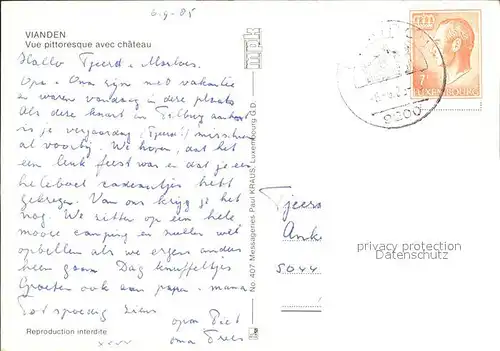 6-9-85
VIANDEN
Vue pittoresque avec château
Hallo Tjeerd - Marloes.
Opa - Oma zijn met vakantie
en waren vandaag in deze plaats
Als deze kaart in Tilburg aankomt
is je verjaardag (Tjeerd) misschien
al voorbij. We hopen, dat het
een leuk feest was en dat je een
heleboel cadeautjes hebt
gekregen. Van ons krijg je het
nog. We zitten op een hele
mooie camping en zullen wel
opbellen als we ergens anders
heen gaan Dag knuffeltjes
Groeten ook aan papa - mama
Tot spoedig ziens
opa Piet
oma Trees
Reproduction interdite
mpk
No. 407 Messageries Paul KRAUS, Luxembourg G.D.
7
LUXEMBOURG
Tjeer
Ank
5044
privacy protection
Datenschutz